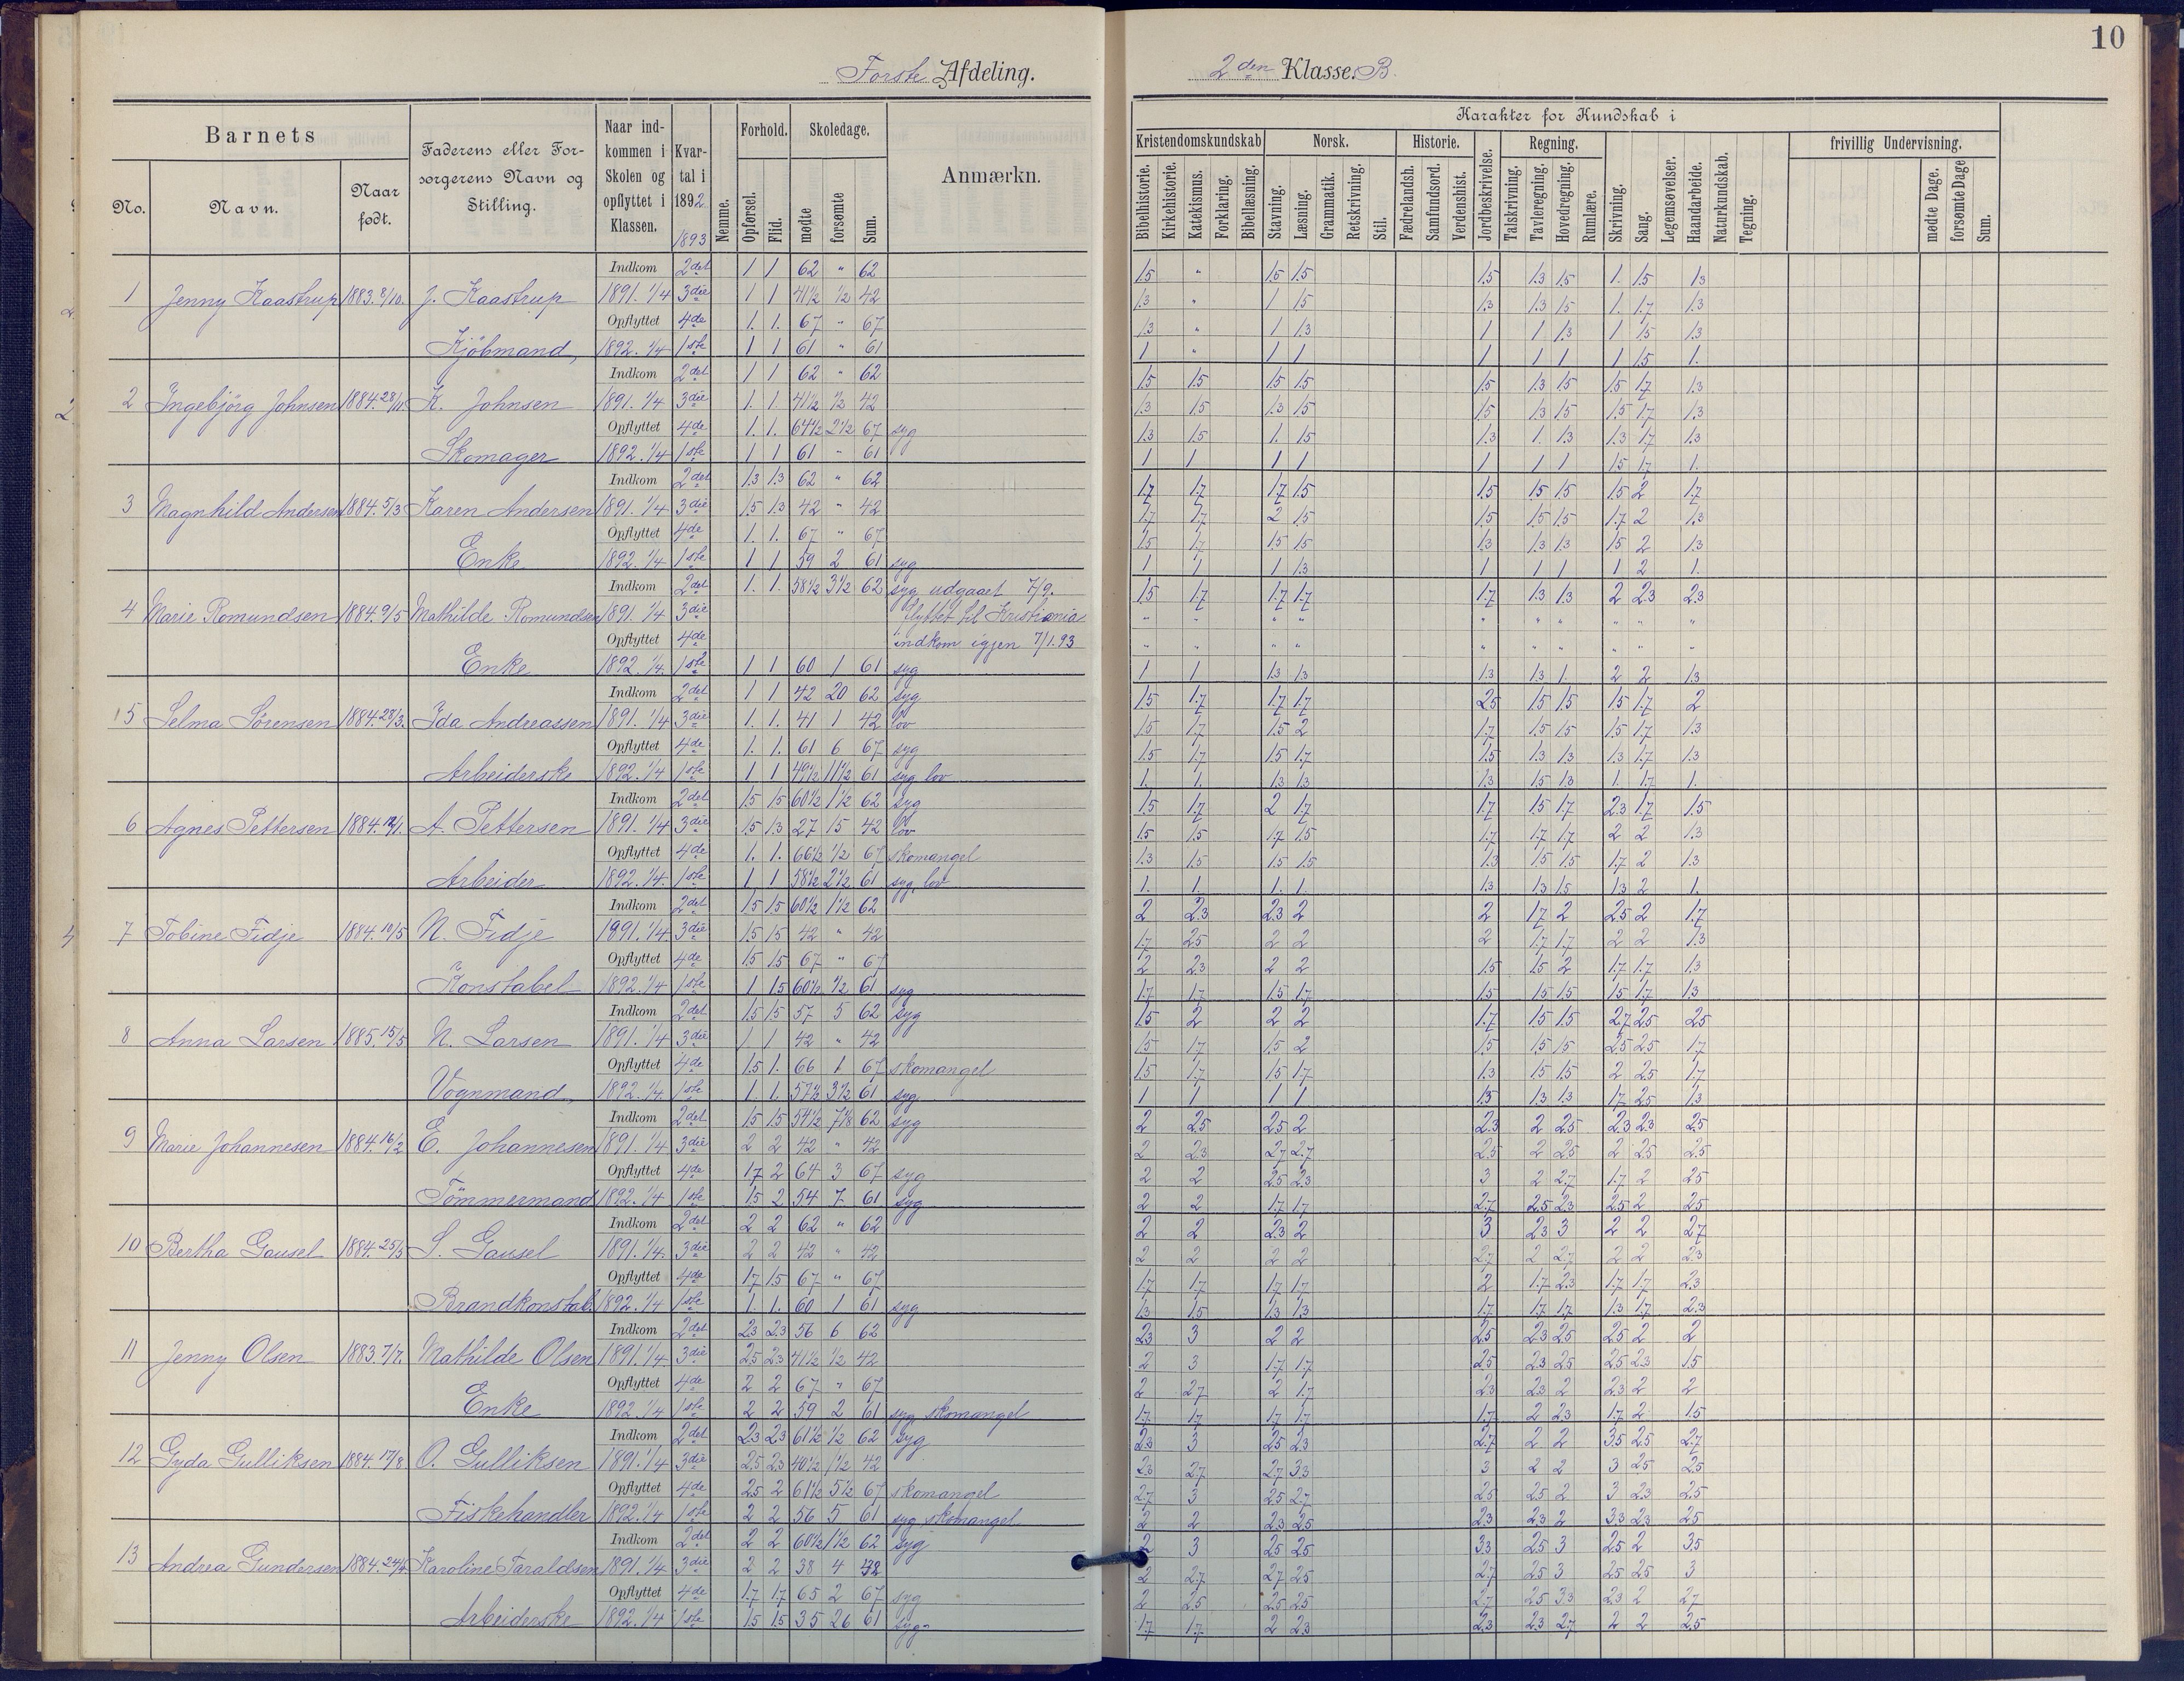 10
Første Afdeling.
2den Klasse. B.
Barnets
Faderens eller Forsørgerens Navn og Stilling.
Naar indkommen i Skolen og opflyttet i Klassen.
Kvartal i 1892 1893
Nemme.
Forhold.
Skoledage.
Anmærkn.
No.
Navn.
Naar født.
Opførsel.
Flid.
mødte
forsømte
Sum.
Karakter for Kundskab i
Kristendomskundskab
Norsk.
Historie.
Regning.
frivillig Undervisning.
Bibelhistorie.
Kirkehistorie.
Katekismus.
Forklaring.
Bibellæsning.
Stavning.
Læsning.
Grammatik.
Retskrivning.
Stil.
Fædrelandsh.
Samfundsord.
Verdenshist.
Jordbeskrivelse.
Talskrivning.
Tavleregning.
Hovedregning.
Rumlære.
Skrivning.
Sang.
Legemsøvelser.
Haandarbeide.
Naturkundskab.
Tegning.
mødte Dage.
forsømte Dage
Sum.
Indkom 2det 1 1 62 " 62
1 Jenny Kaastrup 1883. 8/10. J. Kaastrup 1891. 1/4 3die 1 1 41½ ½ 42
Opflyttet 4de 1. 1. 67 " 67
Kjøbmand, 1892. 1/4 1ste 1 1 61 " 61
Indkom 2det 1 1 62 " 62
2 Ingebjörg Johnsen 1884. 28/11 K. Johnsen 1891. 1/4 3die 1. 1 41½ ½ 42
Opflyttet 4de 1. 1. 64½ 2½ 67 syg
Skomager 1892. 1/4 1ste 1 1 61 " 61
Indkom 2det 1.3 1.3 62 " 62
3 Magnhild Andersen 1884. 5/3 Karen Andersen 1891. 1/4 3die 1.5 1.3 42 " 42
Opflyttet 4de 1. 1. 67 " 67
Enke 1892. 1/4 1ste 1 1 59 2 61 syg
Indkom 2det 1. 1. 58½ 3½ 62 syg udgaaet 7/9.
4 Marie Romundsen 1884. 9/5 Mathilde Romundsen 1891. 1/4 3die flyttet til Kristiania
Opflyttet 4de indkom igjen 7/1.93
Enke 1892. 1/4. 1ste 1 1 60 1 61 syg
Indkom 2det 1 1 42 20 62 syg
5 Selma Sörensen 1884. 28/3. Ida Andreassen 1891. 1/4 3die 1. 1. 41 1 42 lov
Opflyttet 4de 1. 1. 61 6 67 syg
Arbeiderske 1892. 1/4 1ste 1 1 49½ 11½ 61 syg lov
Indkom 2det 1.5 1.5 60½ 1½ 62 syg
6 Agnes Pettersen 1884. A. Pettersen 1891. 1/4 3die 1.5 1.3 27 15 42 lov
Opflyttet 4de 1. 1. 66½ ½ 67 skomangel
Arbeider 1892. 1/4. 1ste 1 1 58½ 2½ 61 syg, lov
Indkom 2det 1.5 1.5 60½ 1½ 62
7 Tobine Fidje 1884. 10/5 N. Fidje 1891. 1/4 3die 1.5 1.5 42 " 42
Opflyttet 4de 1.5 1.5 67 " 67
Konstabel 1892. 1/4 1ste 1 1.5 60½ ½ 61 syg
Indkom 2det 1.5 1.5 57 5 62 syg
8 Anna Larsen 1885. 15/5 N. Larsen 1891. 1/4 3die 1 1 42 " 42
Opflyttet 4de 1.5 1. 66 1 67 skomangel
Vognmand, 1892. 1/4. 1ste 1. 1. 57½ 3½ 61 syg
Indkom 2det 1.5 1.5 54½ 62 syg
9 Marie Johannesen 1884. 16/2 E. Johannesen 1891. 1/4 3die 2 2 42 " 42
Opflyttet 4de 1.7 2 64 3 67 syg
Tömmermand 1892. 1/4 1ste 1.5 2 54 7 61 syg
Indkom 2det 2 2 62 " 62
10 Bertha Gausel 1884. 25/5 S. Gausel 1891. 1/4. 3die 2 2 42 " 42
Opflyttet 4de 1.7 1.5 67 " 67
Brandkonstab. 1892. 1/4 1ste 1. 1. 60 1 61 syg
Indkom 2det 2.3 2.3 56 6 62
11 Jenny Olsen 1883. 7/7. Mathilde Olsen 1891. 1/4 3die 2.5 2.3 41½ ½ 42
Opflyttet 4de 2 2 67 " 67
Enke 1892. 1/4 1ste 2 2 59 2 61 syg skomangel
Indkom 2det 2.3 2.3 61½ ½ 62 syg
12 Gyda Gulliksen 1884. 17/8 O. Gulliksen 1891. 1/4 3die 2.5 2.3 40½ 1½ 42
Opflyttet 4de 2.5 2 61½ 5½ 67 skomangel
Fiskehandler 1892. 1/4 1ste 2 2 56 5 61 syg, skomangel
Indkom 2det 2 2 60½ 1½ 62 syg
13 Andrea Gundersen 1884. Karoline Taraldsen 1891. 1/4 3die 2 2 38 4 42
Opflyttet 4de 1.7 1.7 65 2 67 syg
Arbeiderske 1892. 1/4 1ste 1.5 1.5 35 26 61 syg
1.5 " 1.5 1.5 1.5 1.3 1.5 1. 1.5 1.3
1.3 " 1 1.5 1.3 1.3 1.5 1. 1.7 1.3
1.3 " 1 1.3 1 1 1.3 1 1.5 1.3
1 " 1 1 1 1 1 1 1.5 1.
1.5 1.5 1.5 1.5 1.5 1.3 1.5 1.5 1.7 1.3
1.3 1.5 1.3 1.5 1.5 1.3 1.5 1.5 1.7 1.3
1.3 1.5 1. 1.5 1.3 1. 1.3 1.3 1.7 1.3
1 1 1 1 1 1 1 1.5 1.7 1.
1.7 1.7 1.7 1.5 1.5 1.5 1.5 1.5 2 1.7
1.7 1.7 2 1.5 1.5 1.5 1.5 1.7 2 1.3
1.5 1.7 1.5 1.5 1.3 1.3 1.3 1.5 2 1.3
1 1 1 1.3 1 1 1 1 2 1.
1.5 1.7 1.7 1.7 1.7 1.3 1.3 2 2.3 2.3
" " " " " " " " " "
" " " " " " " " " "
1 1 1.3 1.3 1.3 1.3 1. 2 2 1.3
1.5 1.7 1.7 1.7 2.5 1.5 1.5 1.5 1.7 2
1.5 1.7 1.5 2 1.7 1.5 1.5 1.5 1.7 1.3
1.5 1.7 1.5 1.7 1.5 1.3 1.3 1.3 1.7 1.3
1. 1. 1.3 1.3 1.3 1.5 1.3 1. 1.7 1.
1.5 1.7 2 1.7 1.7 1.5 1.7 2.3 1.7 1.5
1.5 1.5 1.7 1.5 1.7 1.7 1.7 2 2 1.3
1.3 1.5 1.5 1.5 1.3 1.5 1.5 1.7 2 1.3
1. 1. 1. 1. 1.3 1.3 1.5 1.3 2 1.
2 2.3 2.3 2 2 1.7 2 2.5 2 1.7
1.7 2.5 2 2 2 1.7 1.7 2 2 1.3
2 2.3 2 2 1.5 1.5 2 1.7 1.7 1.3
1.7 1.7 1.5 1.7 1.5 1.5 1.5 1.5 1.7 1.3
1.5 2 2 2 1.7 1.5 1.5 2.7 2.5 2.5
1.5 1.7 1.5 2 1.5 1.5 1.5 2.5 2.5 1.7
1.5 1.7 1.5 1.7 1.3 1.5 1.5 2 2.5 1.7
1 1 1 1 1.3 1.3 1.3 1.7 2.5 1.3
2 2.5 2.5 2 2.3 2 2.5 2.3 2.3 2.5
2 2.3 2.7 2.7 2.5 2 2.5 2 2.5 2.5
2 2 2.5 2.3 3 2 2.7 1.7 2 2.5
2 2 1.7 1.7 2.7 2.5 2.3 2.5 2 2.5
2 2 2.3 2 3 2.3 3 2 2 2.7
2 2 2 2 2.7 2 2.7 2 2 2.3
1.7 1.7 1.7 1.7 2 1.7 2.3 1.7 1.7 2.3
1.3 1.5 1.3 1.3 1.7 1.7 1.7 1.3 1.7 2.3
2.3 3 2 2 2.5 2.3 2.5 2.5 2 2
2 3 1.7 1.7 2.5 2.3 2.5 2.5 2.3 1.5
2 2.7 2 1.7 2.3 2.3 2 2.3 2 2
1.7 1.7 1.7 1.7 1.7 2 2.3 1.7 2 1.5
2.3 3 2.5 2.3 2.7 2 2 3.5 2.5 2.7
2.3 2.7 2.7 3.3 3 2 2 3 2.5 2.5
2.7 3 2.5 2.7 2.5 2.5 2 3 2.3 2.5
2 2 2.3 2.5 2.3 2.3 2 3.3 2.3 2.5
2 3 2.5 2.5 3.3 2.5 3 2.5 2 3.5
2 2.7 2.7 2.5 2.7 2.5 3 2.5 2.5 3
2 2.5 2.5 2.5 2.7 2.5 3.3 2.3 2 2.7
1.7 1.7 2 2.3 2.3 2.3 2.7 2 2 2.5